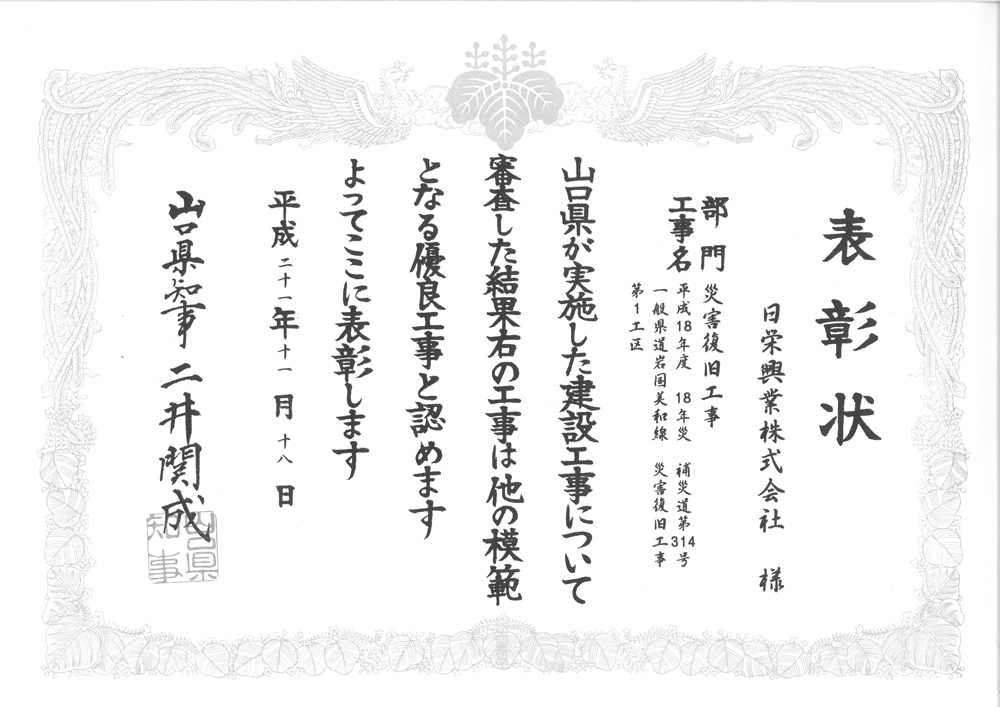 表彰状
日栄興業株式会社 様
部門 災害復旧工事
工事名 平成18年度 18年災 補災道第314号
一般県道岩国美和線 災害復旧工事
第1工区
山口県が実施した建設工事について
審査した結果右の工事は他の模範
となる優良工事と認めます
よってここに表彰します
平成二十一年十一月十八日
山口県知事 二井関成
山口県
知事